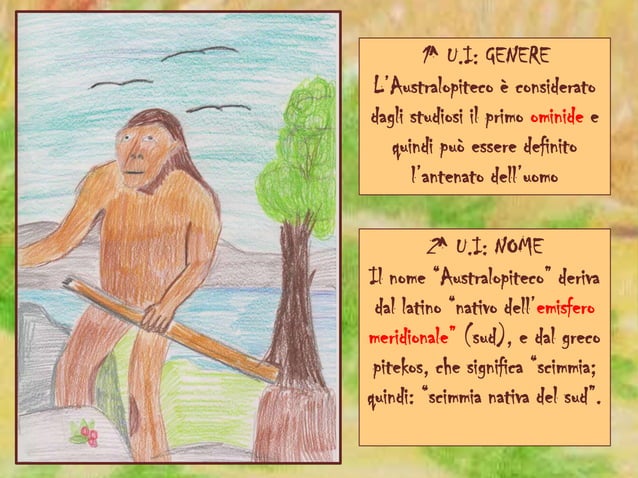 1^ U.I: GENERE
L'Australopiteco è considerato
dagli studiosi il primo ominide e
quindi può essere definito
l'antenato dell'uomo
2^ U.I: NOME
Il nome “Australopiteco” deriva
dal latino “nativo dell'emisfero
meridionale” (sud), e dal greco
pitekos, che significa “scimmia;
quindi: “scimmia nativa del sud”.